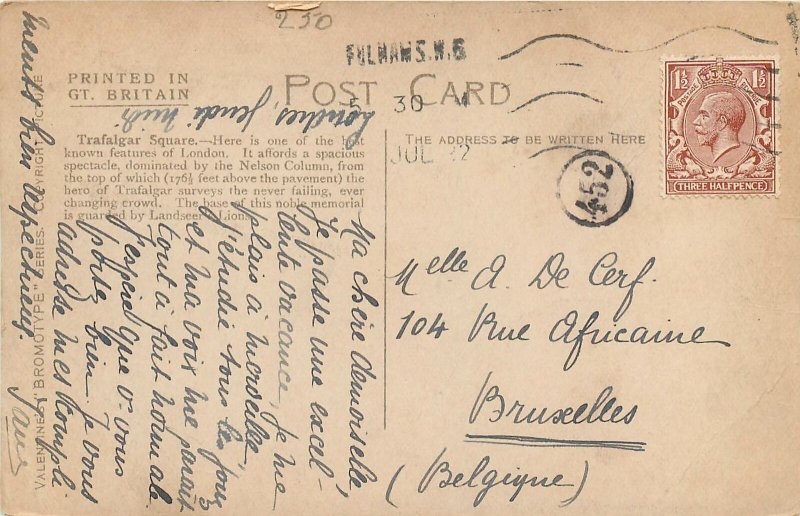 250
FULHAM S.W.6
5 30 M
JUL 22
POST CARD
PRINTED IN
GT. BRITAIN
Trafalgar Square.—Here is one of the best
known features of London. It affords a spacious
spectacle, dominated by the Nelson Column, from
the top of which (176½ feet above the pavement) the
hero of Trafalgar surveys the never failing, ever
changing crowd. The base of this noble memorial
is guarded by Landseer's Lions.
THE ADDRESS TO BE WRITTEN HERE
1½ 1½
POSTAGE REVENUE
THREE HALFPENCE
452
Londres, Jeudi midi
Ma chère demoiselle,
Je passe une excel-
lente vacance, je me
plais à merveille.
J'étudie tous les jours
et ma voix me paraît
tout à fait normale.
J'espère que v. vous
portez bien. Je vous
adresse mes compli-
ments bien respectueux.
Melle A. De Cerf.
104 Rue Africaine
Bruxelles
(Belgique)
VALENTINE'S "BROMOTYPE" SERIES. COPYRIGHT PICTURE